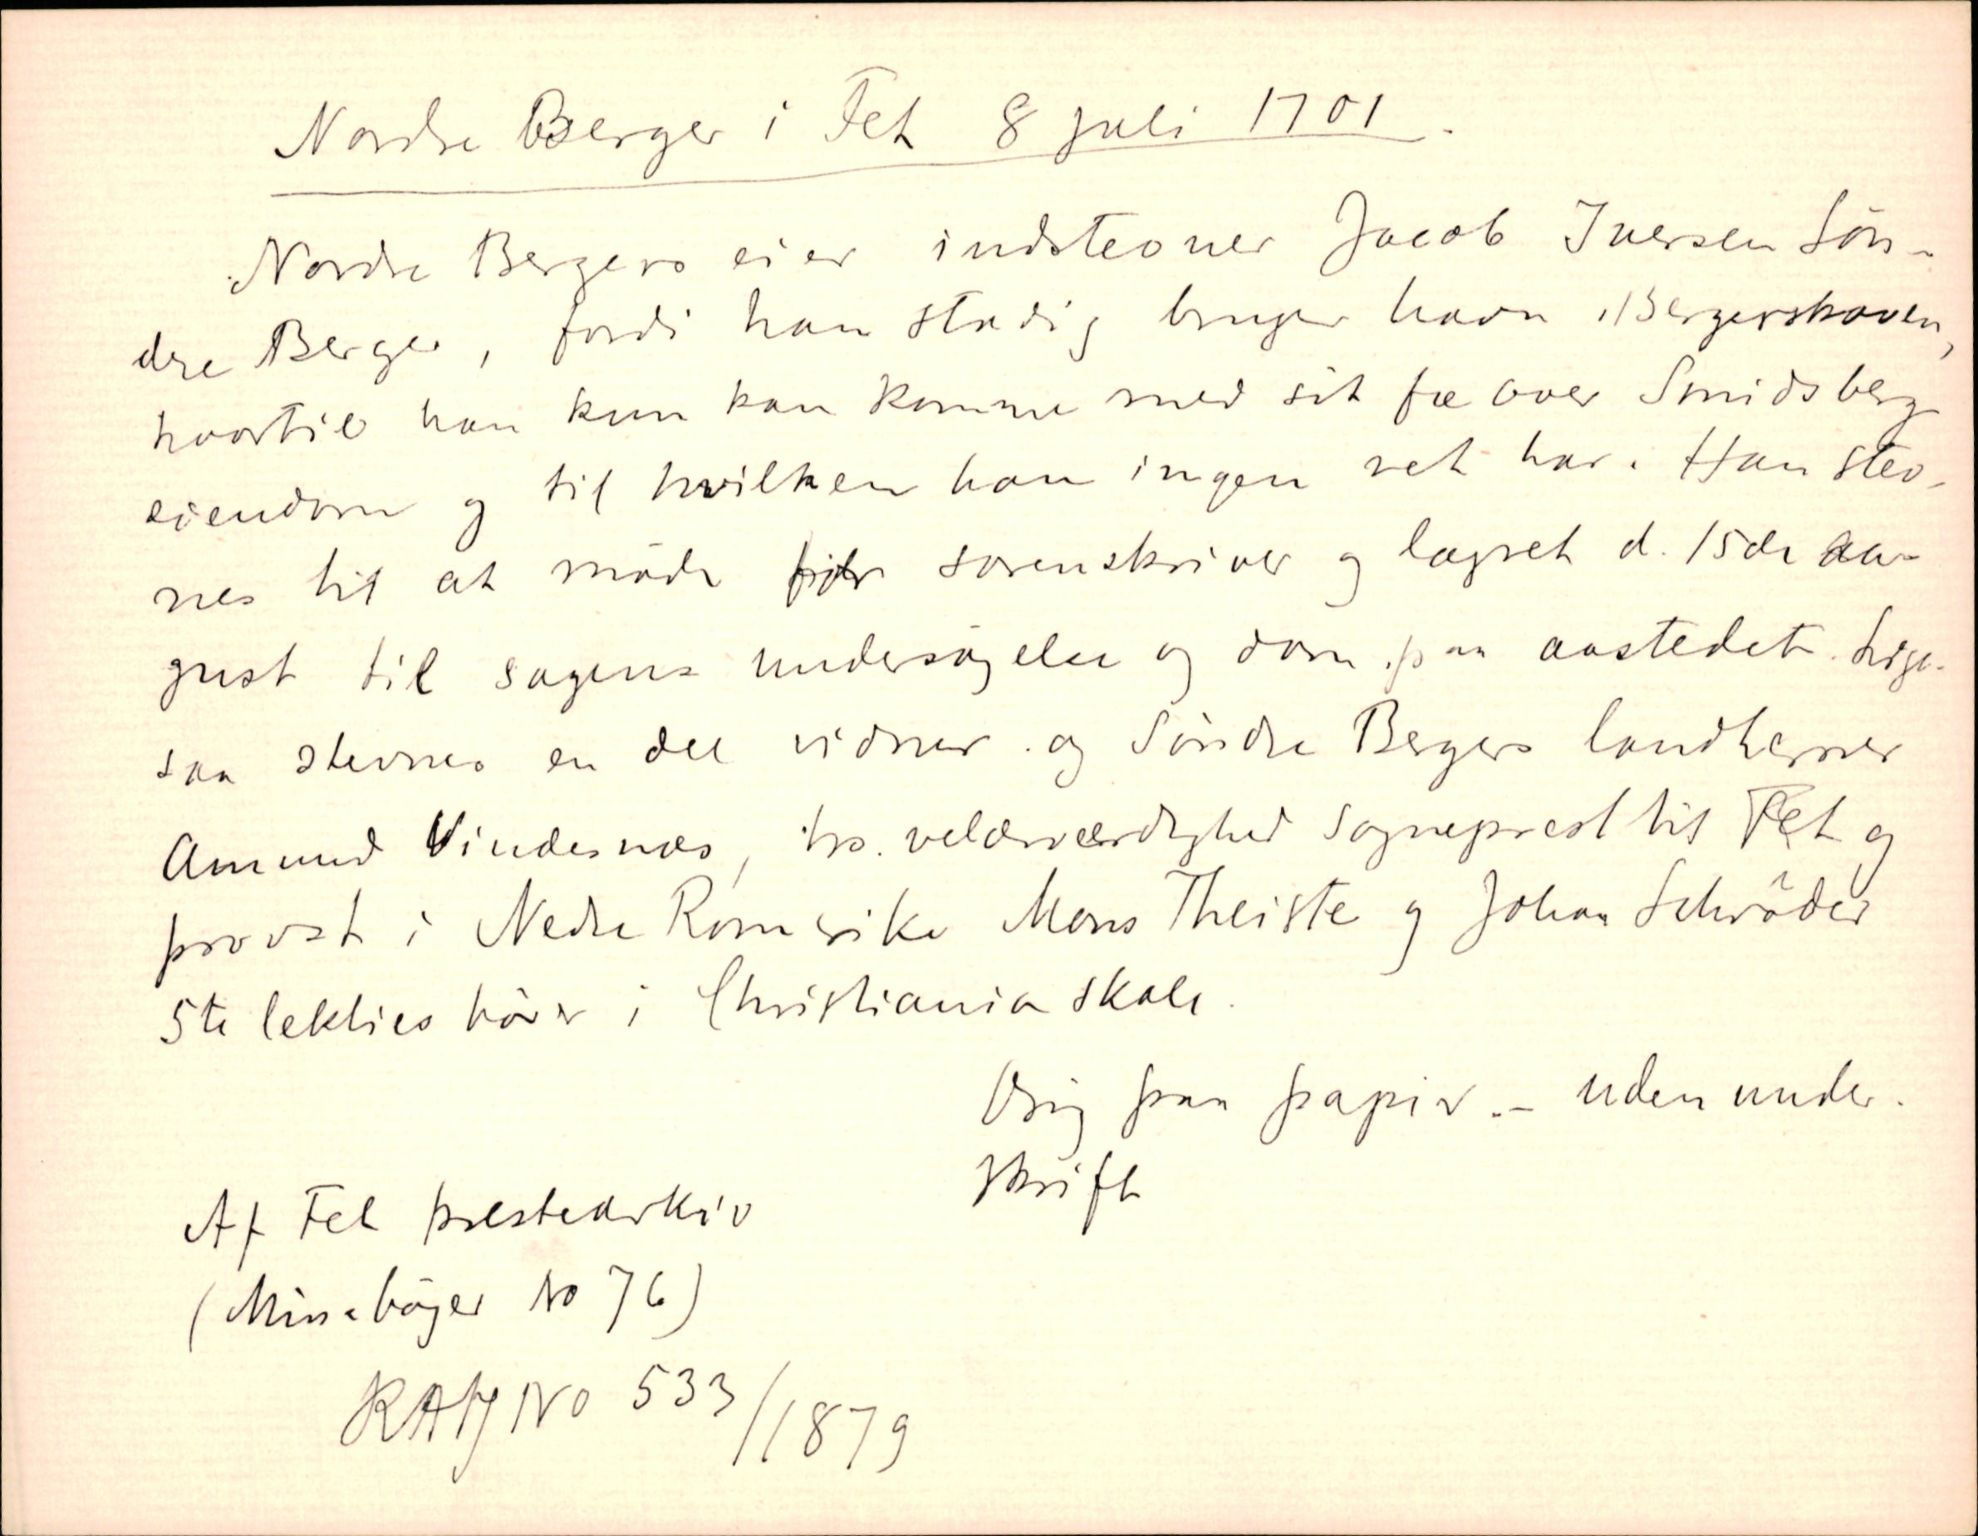 Nordre Berger i Fet 8 juli 1701.
Nordre Bergers eier indstevner Jacob Iversen Sön-
dre Berger, fordi han stadig bruger havn i Bergerskoven,
hvortil han kun kan komme med sit fæ over Smidsberg
eiendom og til hvilken han ingen ret har. Han stev-
nes til at möde for sorenskriver og lagret d. 15de au-
gust til sagens undersögelse og dom paa aastedet. Lige-
saa stevnes en del vidner og Söndre Bergers landherrer
Amund Vindesnæs, hs. velærværdighed sogneprest til Fet og
provst i Nedre Romerike Mons Theiste og Johan Schröder
5te lekties hörer i Christiania skole.
Orig paa papir. – uden under-
skrift
Af Fet prestearkiv
(Min.böger No 76)
RAJ No 533/1879